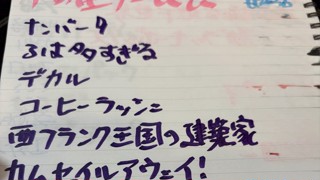 ナンバー9
3は多すぎる
デカル
コーヒーラッシュ
西フランク王国の建築家
カムセイルアウェイ!